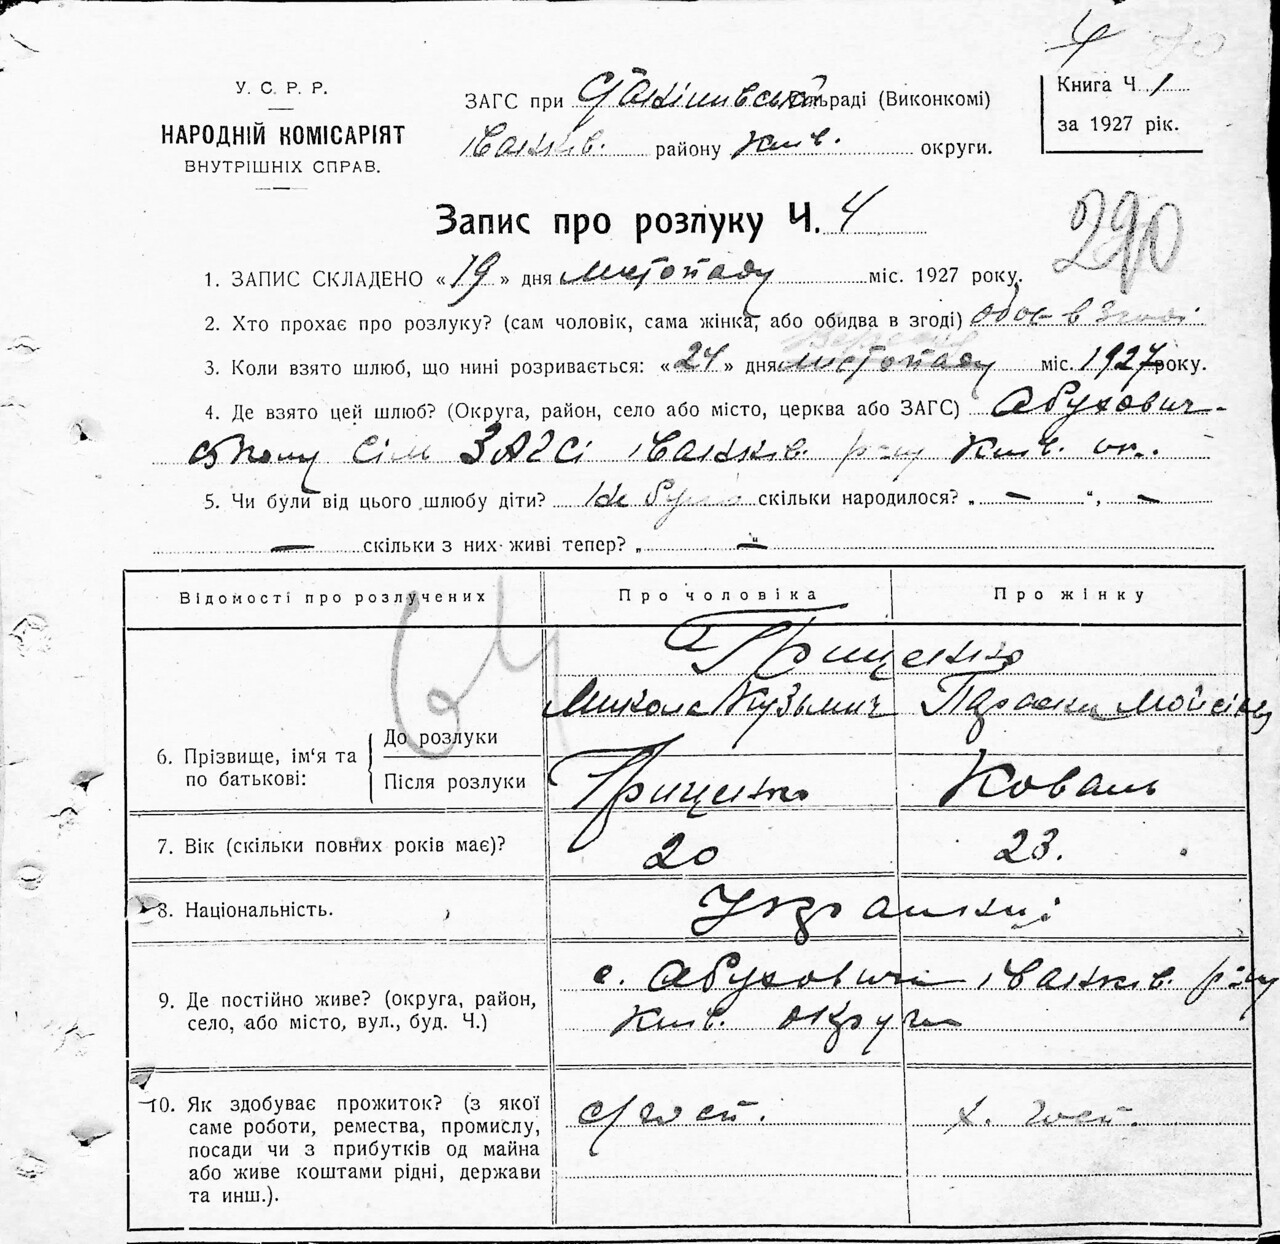 4
У. С. Р. Р.
НАРОДНІЙ КОМІСАРІЯТ
ВНУТРІШНІХ СПРАВ.
ЗАГС при сільраді (Виконкомі)
Іванків. району Київ. округи.
Книга Ч. 1
за 1927 рік.
Запис про розлуку Ч. 4
290
1. ЗАПИС СКЛАДЕНО «19» дня листопаду міс. 1927 року.
2. Хто прохає про розлуку? (сам чоловік, сама жінка, або обидва в згоді) обоє в згоді
3. Коли взято шлюб, що нині розривається: «24» дня листопаду міс. 1927 року.
4. Де взято цей шлюб? (Округа, район, село або місто, церква або ЗАГС) Абухович-
ському сіл ЗАГСі Іванків. р-ну Київ. ок.
5. Чи були від цього шлюбу діти? Не було скільки народилося? „ — “, —
— скільки з них живі тепер? „ — “
Відомості про розлучених Про чоловіка Про жінку
64
Гриценко
Микола Кузьмич Параска Мойсіївна
6. Прізвище, ім‘я та по батькові: До розлуки
Після розлуки Гриценко Коваль
7. Вік (скільки повних років має)? 20 23.
8. Національність. Українці
9. Де постійно живе? (округа, район, село, або місто, вул., буд. Ч.) с. Абуховичі Іванків. р-ну
Київ. округи
10. Як здобуває прожиток? (з якої с/госп. х. госп.
саме роботи, ремества, промислу,
посади чи з прибутків од майна
або живе коштами рідні, держави
та инш.).